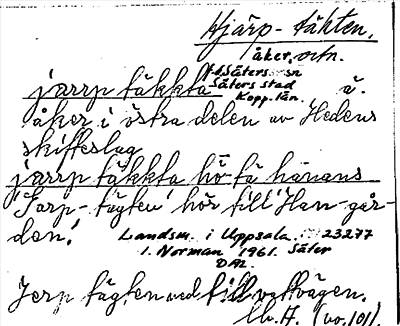 Hjärp-täkten,
åker, ortn.
Säters sn
jarrp täkkta Säters stad ä.
Kopp. län.
åker i östra delen av Hedens
skifteslag
jarrp täkkta hö tä hanans
'Jarp-tägten' hör till 'Han-går-
den'.
Landsm. i Uppsala 23277
I. Norman 1961. Säter
DAL.
Jerp tägten ved till vattvägen.
(no. 101).